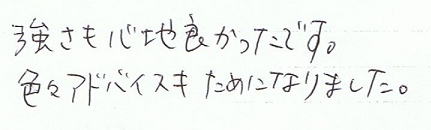 強さも心地良かったです。
色々アドバイスも ためになりました。